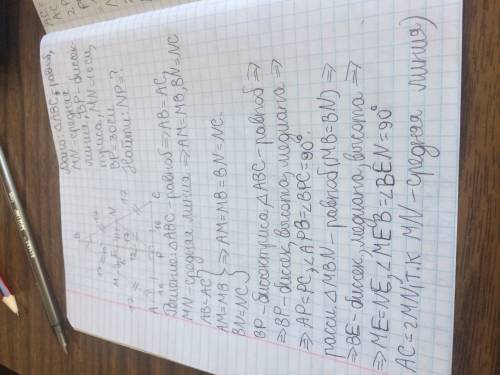 Дано: △ABC, равноб,
MN-средняя
линия, BP-бисек
триса, MN=10см,
BP=30см.
Найти: NP=?
B
M
N
A
P
C
Решение: △ABC-равноб ⇒ AB=AC,
MN-средняя линия ⇒ AM=MB, BN=NC
AB=AC
AM=MB } ⇒ AM=MB=BN=NC.
BN=NC
BP-биссектриса △ABC-равноб ⇒
⇒ BP-бисек, высота, медиана ⇒
⇒ AP=PC, ∠APB=∠BPC=90°.
рассм △MBN-равноб (MB=BN) ⇒
⇒ BE-бисек, медиана, высота ⇒
⇒ ME=NE, ∠MEB=∠BEN=90°
AC=2MN (т.к MN-средняя линия)